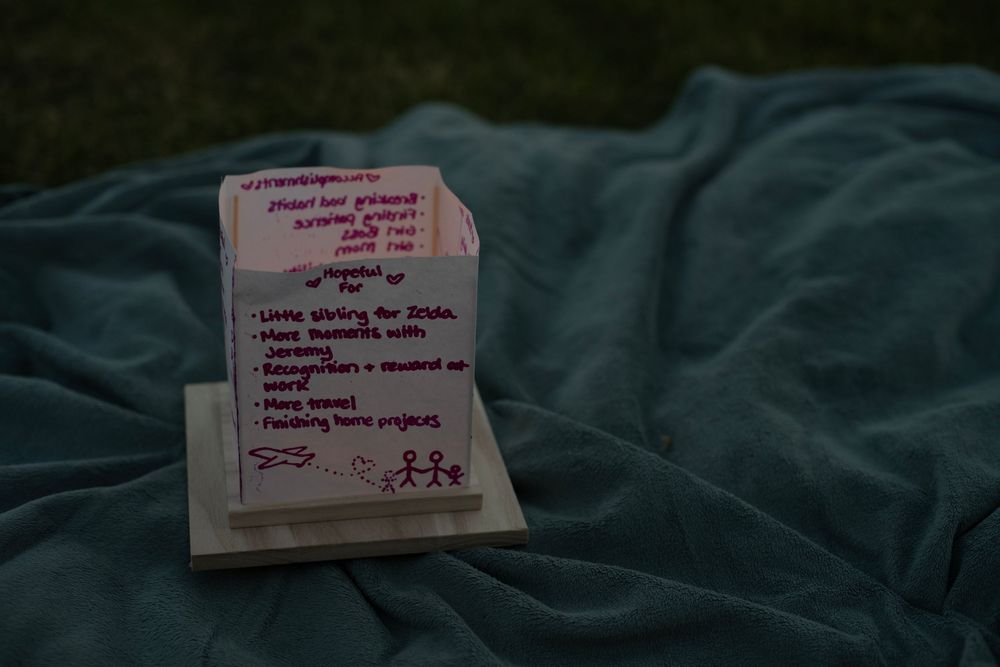 Accomplishments
• Breaking bad habits
• Finding patience
• Girl Boss
• Girl Mom
Hopeful
For
• Little sibling for Zelda
• More moments with
Jeremy
• Recognition + reward at
work
• More travel
• Finishing home projects